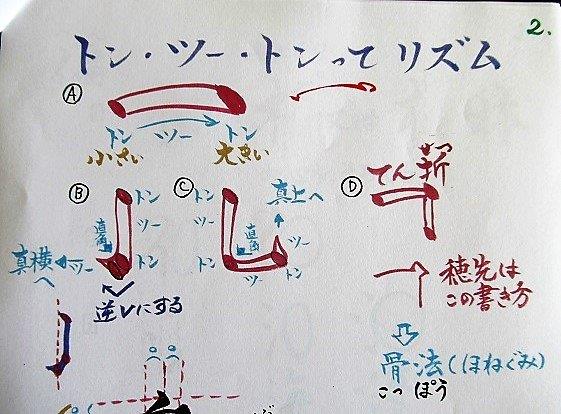 2.
トン・ツー・トンって リズム
Ⓐ
トン ツー トン
小さい 大きい
Ⓑ
トン
ツー
直角
トン
ツー
真横へ
逆レにする
Ⓒ
トン
ツー
直角
トン
ツー
トン
ツー
真上へ
Ⓓ
てん折
せつ
穂先は
この書き方
骨法(ほねぐみ)
こっぽう